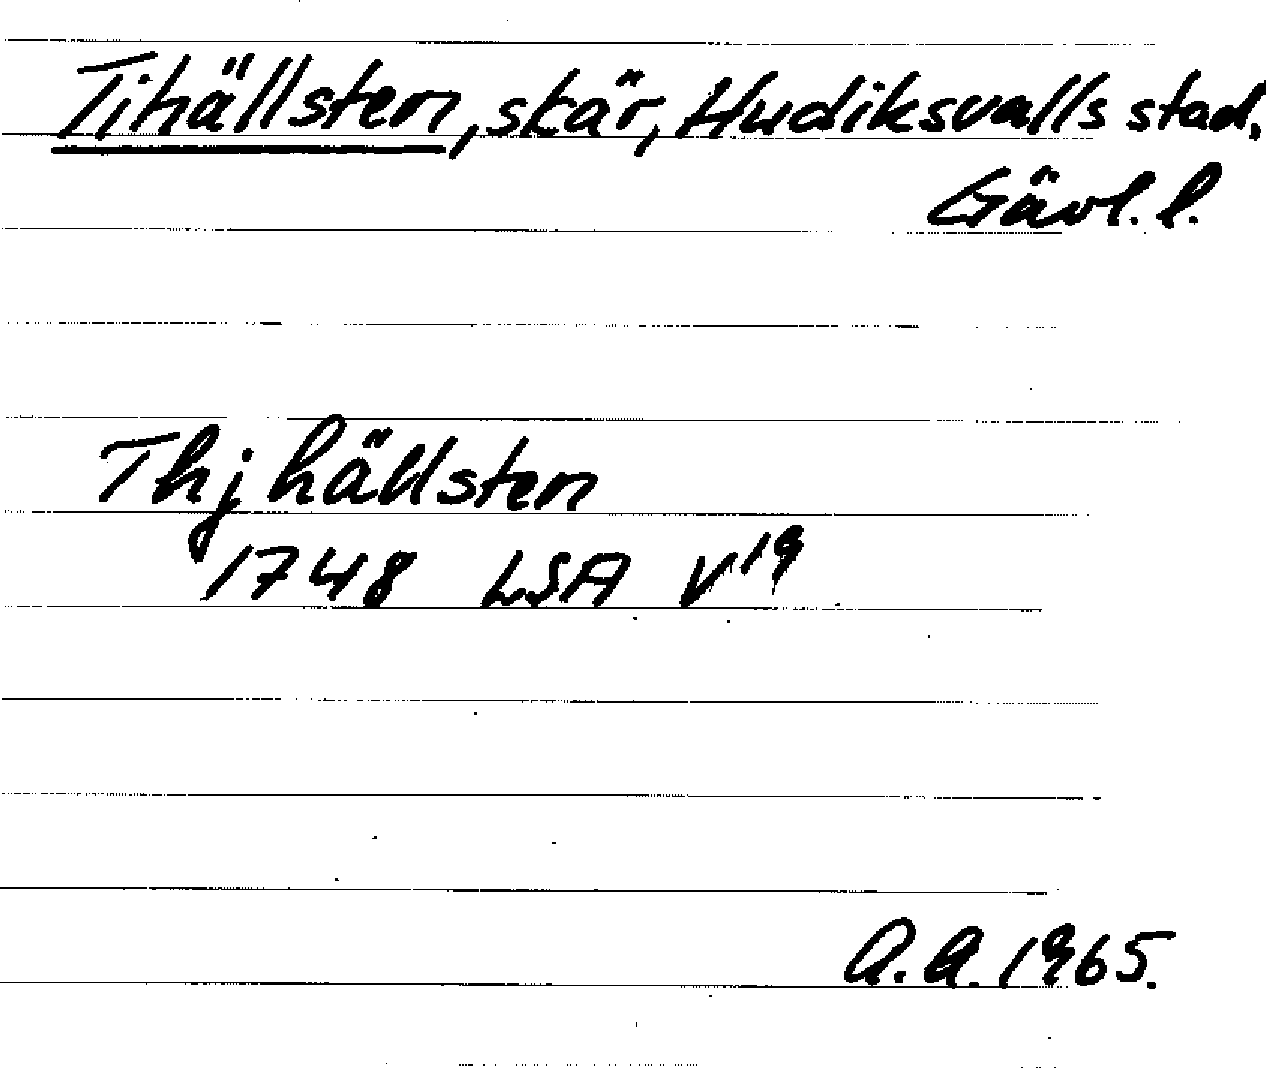 Tihällsten, skär, Hudiksvalls stad,
Gävl. l.
Thjhällsten
1748 LSA V¹⁹
A.A. 1965.